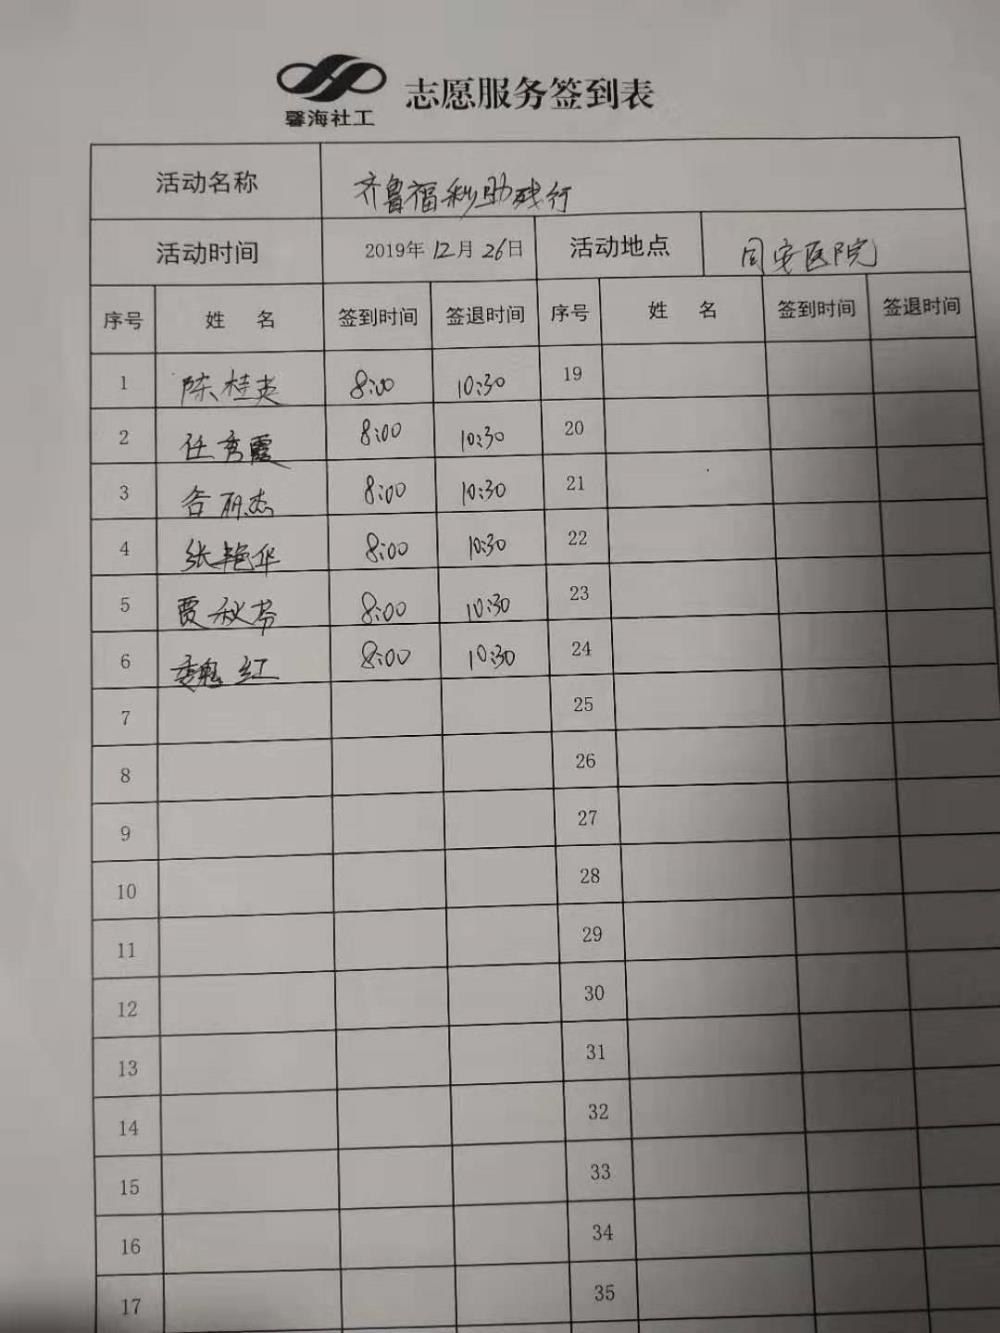 馨海社工 志愿服务签到表
活动名称 齐鲁福利助残行
活动时间 2019年12月26日 活动地点 同安医院
序号 姓 名 签到时间 签退时间 序号 姓 名 签到时间 签退时间
1 陈桂英 8:00 10:30 19
2 任秀霞 8:00 10:30 20
3 谷丽杰 8:00 10:30 21
4 张艳华 8:00 10:30 22
5 贾秋芬 8:00 10:30 23
6 魏红 8:00 10:30 24
7 25
8 26
9 27
10 28
11 29
12 30
13 31
14 32
15 33
16 34
17 35